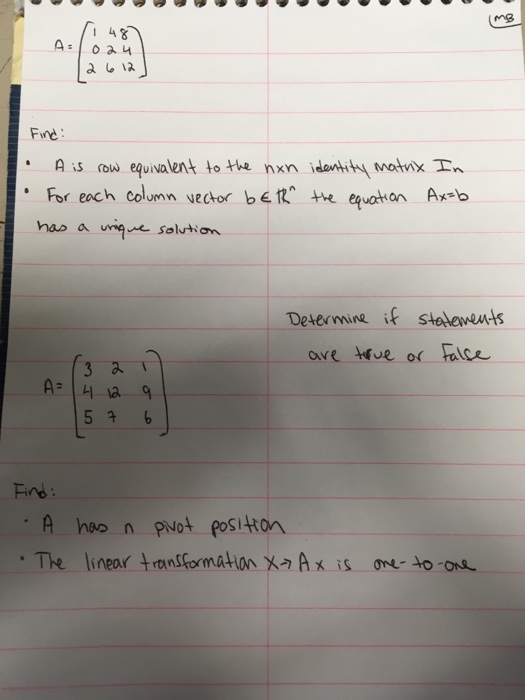 MB
A = [ 1 4 8
0 2 4
2 6 12 ]
Find:
• A is row equivalent to the nxn identity matrix In
• For each column vector b ∈ ℝⁿ the equation Ax=b
has a unique solution
Determine if statements
are true or False
A = [ 3 2 1
4 12 9
5 7 6 ]
Find:
• A has n pivot position
• The linear transformation X→Ax is one-to-one